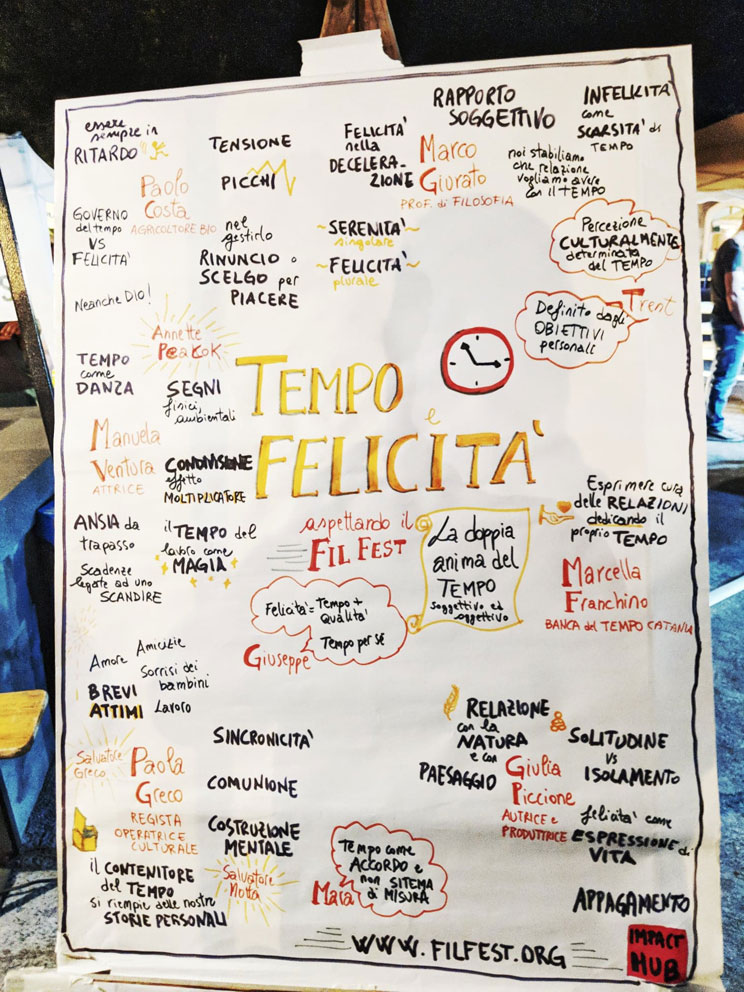 essere
sempre in
RITARDO!!
Paolo
Costa
AGRICOLTORE BIO
GOVERNO
del tempo
VS
FELICITÀ
Neanche DIO!
TENSIONE
PICCHI
nel
gestirlo
RINUNCIO o
SCELGO per
PIACERE
FELICITÀ
nella
DECELERA-
ZIONE
~SERENITÀ~
singolare
~FELICITÀ~
plurale
RAPPORTO
SOGGETTIVO
Marco
Giurato
PROF. di FILOSOFIA
noi stabiliamo
che relazione
vogliamo avere
con il TEMPO
INFELICITÀ
come
SCARSITÀ di
TEMPO
Percezione
CULTURALMENTE
determinata
del TEMPO
Trent
Definito dagli
OBIETTIVI
personali
Annette
PeaKok
TEMPO
come
DANZA
Manuela
Ventura
ATTRICE
SEGNI
fisici,
ambientali
CONDIVISIONE
effetto
MOLTIPLICATORE
ANSIA da
trapasso
Scadenze
legate ad uno
SCANDIRE
il TEMPO del
lavoro come
MAGIA
TEMPO
e
FELICITÀ
aspettando il
FIL FEST
La doppia
anima del
TEMPO
soggettivo ed
oggettivo
Felicità = Tempo +
Qualità
Tempo per sé
Giuseppe
Esprimere cura
delle RELAZIONI
dedicando il
proprio TEMPO
Marcella
Franchino
BANCA del TEMPO CATANIA
Amore Amicizie
Sorrisi dei
bambini
BREVI
ATTIMI
Lavoro
Salvatore
Greco
Paola
Greco
REGISTA
OPERATRICE
CULTURALE
il CONTENITORE
del TEMPO
si riempie delle nostre
STORIE PERSONALI
SINCRONICITÀ
COMUNIONE
COSTRUZIONE
MENTALE
Salvatore
Motta
Tempo come
ACCORDO e
non SITEMA
di MISURA
Mara
RELAZIONE
con la
NATURA
e con
PAESAGGIO
Giulia
Piccione
AUTRICE e
PRODUTTRICE
SOLITUDINE
vs
ISOLAMENTO
felicità come
ESPRESSIONE di
VITA
APPAGAMENTO
WWW.FILFEST.ORG
IMPACT
HUB